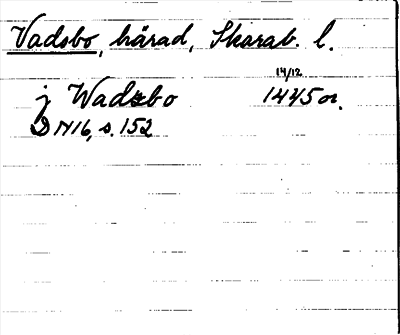 Vadsbo, härad, Skarab. l.
14/12
j Wadzbo 1445 or.
D N16, s. 152